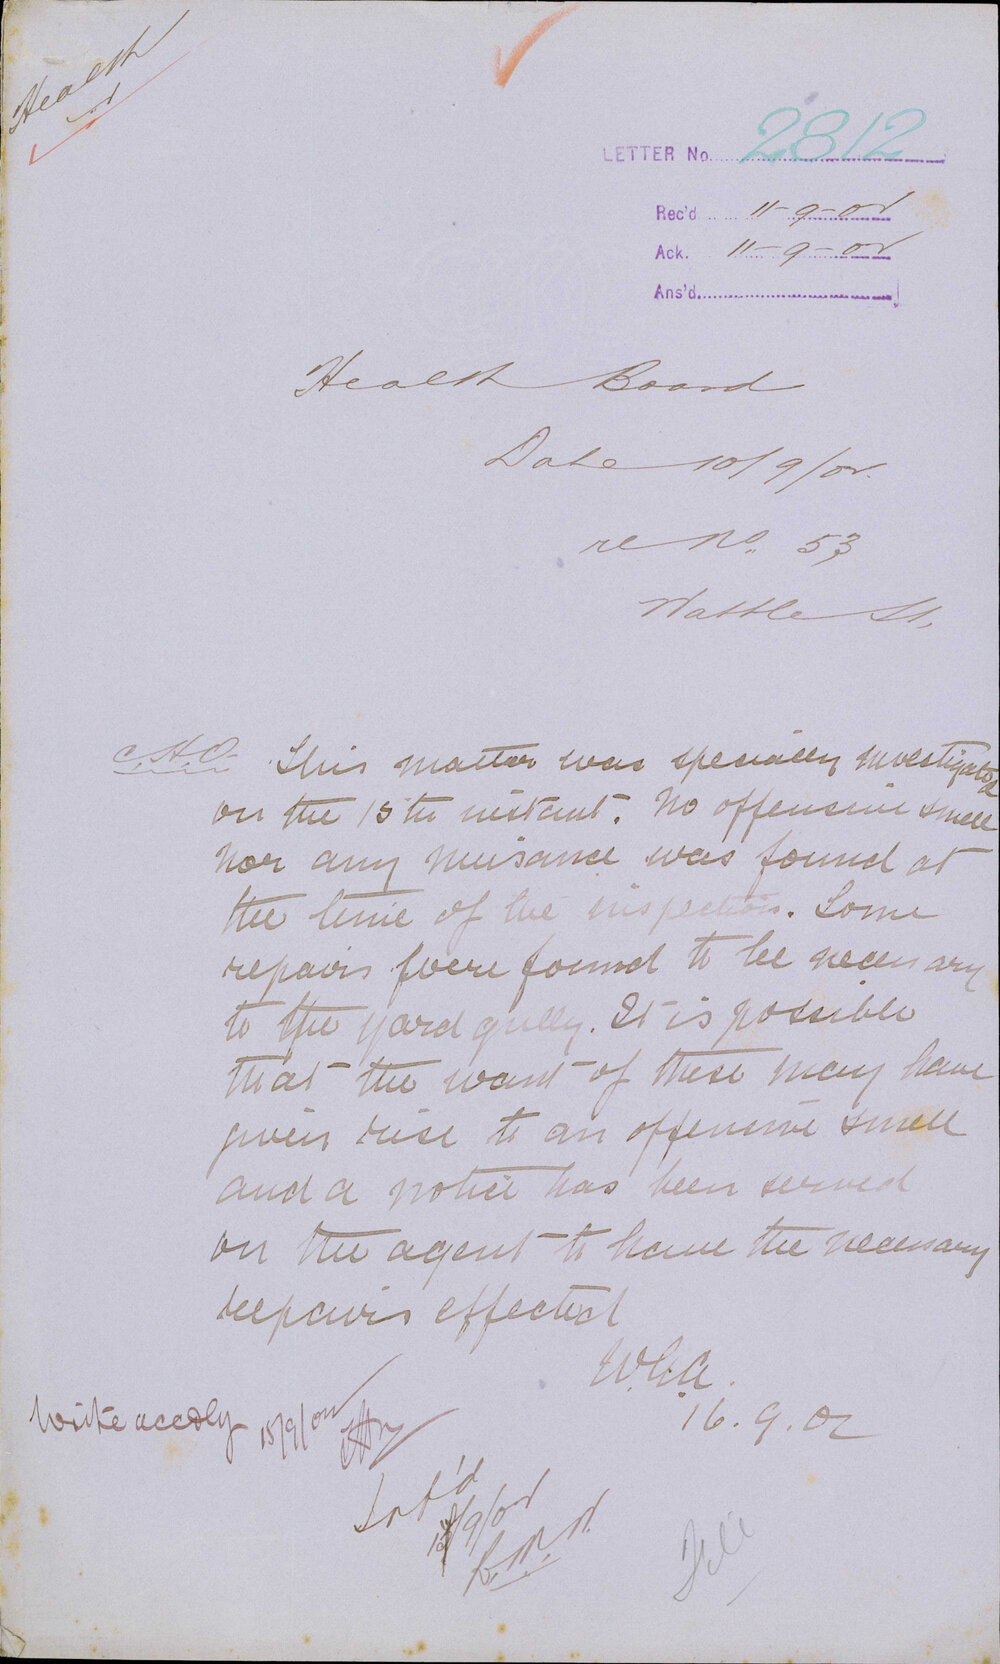 Health
LETTER No. 2812
Rec'd 11-9-02
Ack. 11-9-02
Ans'd
Health Board
Date 10/9/02.
re No. 53
Wattle St.
C.H.O. This matter was specially investigated
on the 15th instant. No offensive smell
nor any nuisance was found at
the time of the inspection. Some
repairs were found to be necessary
to the yard gully. It is possible
that the want of these may have
given rise to an offensive smell
and a notice has been served
on the agent to have the necessary
repairs effected
W.G.A.
16.9.02
Write accdly
Inf'd
/9/02
File